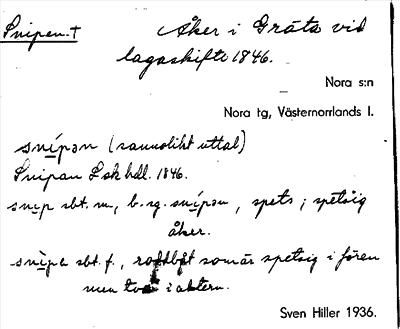 Snipen. † Åker i Gräta vid
lagaskifte 1846.
Nora s:n
Nora tg, Västernorrlands l.
snípən (sannolikt uttal)
Snipan Lsk hdl. 1846.
snip sbt. m., b. sg. snípən, spets; spetsig
åker.
snipa sbt. f., som är spetsig i fören
men i aktern.
Sven Hiller 1936.